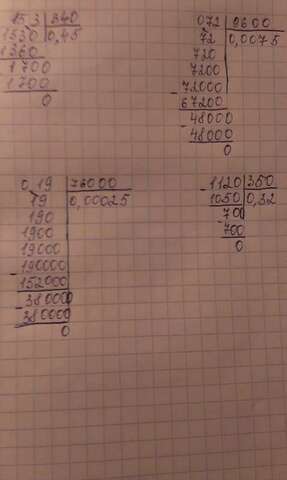 153 340
1530 0,45
1360
1700
1700
0
072 9600
72 0,0075
720
7200
- 72000
67200
- 48000
48000
0
0,19 76000
19 0,00025
190
1900
19000
- 190000
152000
- 380000
380000
0
- 1120 350
1050 0,32
- 700
700
0